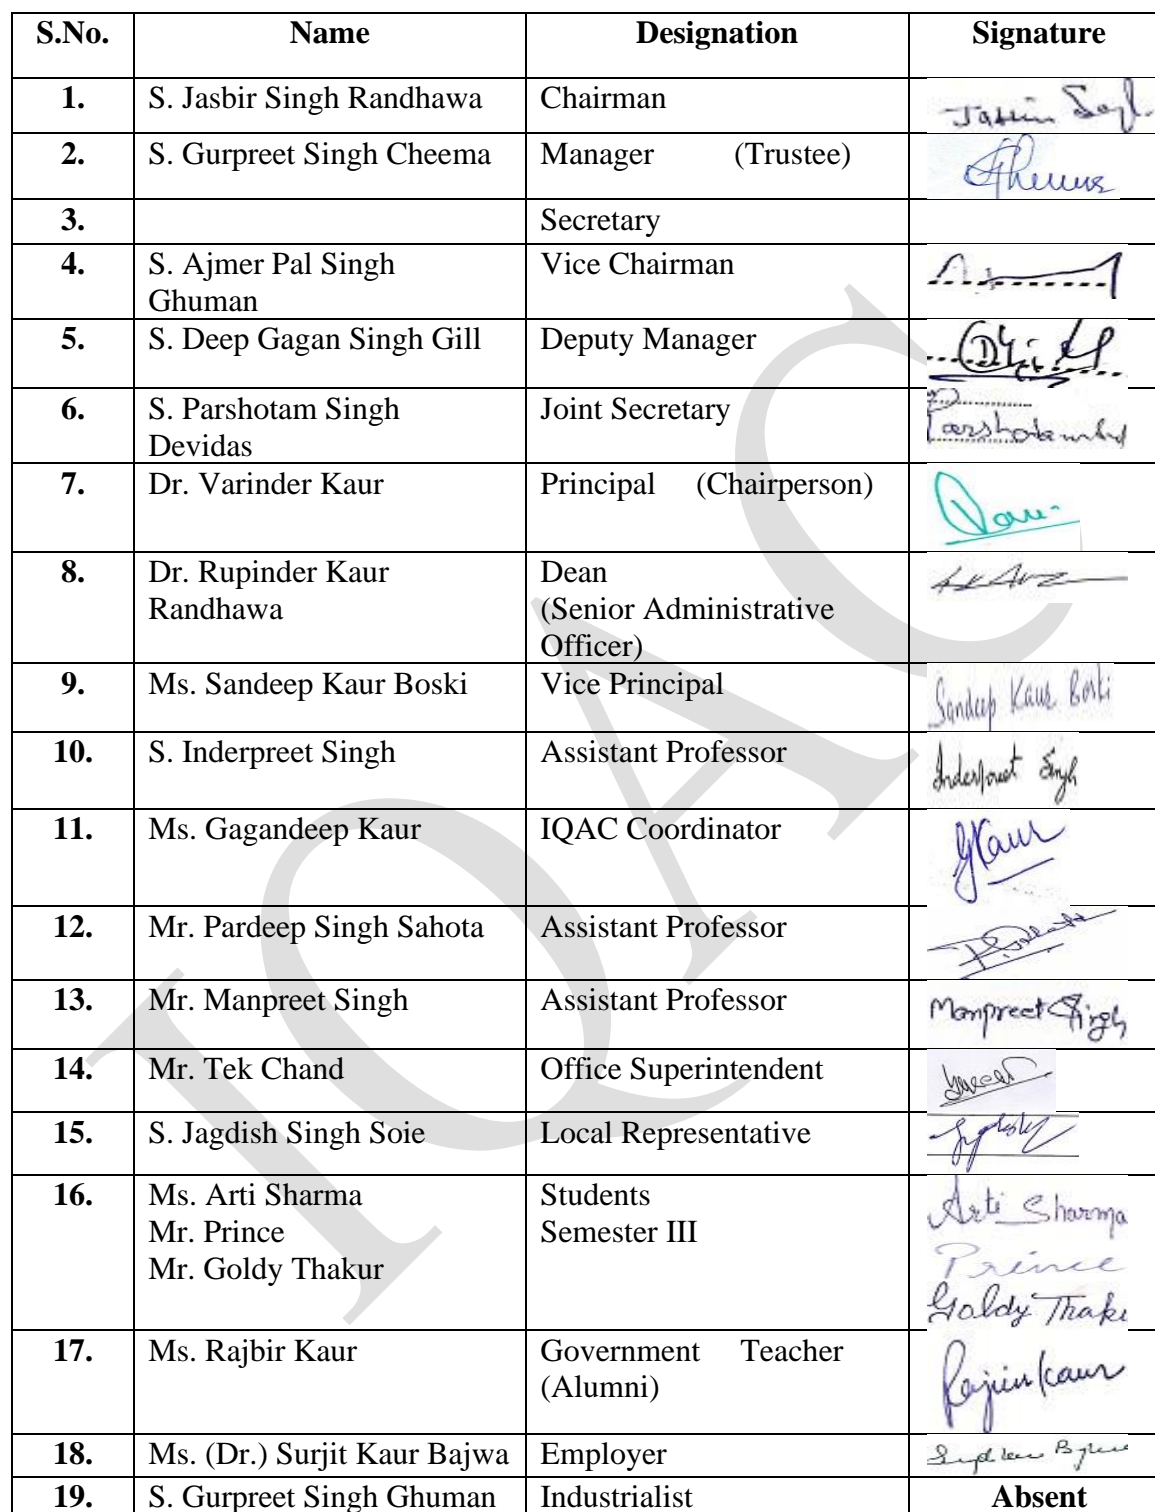 S.No. Name Designation Signature
1. S. Jasbir Singh Randhawa Chairman
2. S. Gurpreet Singh Cheema Manager (Trustee) Cheema
3. Secretary
4. S. Ajmer Pal Singh Vice Chairman
Ghuman
5. S. Deep Gagan Singh Gill Deputy Manager
6. S. Parshotam Singh Joint Secretary
Devidas
7. Dr. Varinder Kaur Principal (Chairperson)
8. Dr. Rupinder Kaur Dean
Randhawa (Senior Administrative
Officer)
9. Ms. Sandeep Kaur Boski Vice Principal Sandeep Kaur Boski
10. S. Inderpreet Singh Assistant Professor Inderpreet Singh
11. Ms. Gagandeep Kaur IQAC Coordinator GKaur
12. Mr. Pardeep Singh Sahota Assistant Professor
13. Mr. Manpreet Singh Assistant Professor Manpreet Singh
14. Mr. Tek Chand Office Superintendent
15. S. Jagdish Singh Soie Local Representative
16. Ms. Arti Sharma Students Arti Sharma
Mr. Prince Semester III Prince
Mr. Goldy Thakur Goldy Thaku
17. Ms. Rajbir Kaur Government Teacher Rajbir Kaur
(Alumni)
18. Ms. (Dr.) Surjit Kaur Bajwa Employer
19. S. Gurpreet Singh Ghuman Industrialist Absent
IQAC